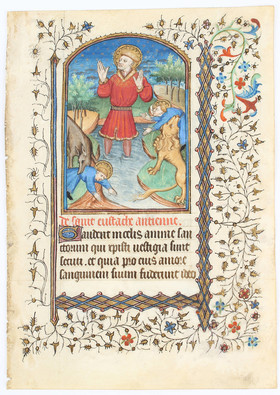 De saint eustache antienne.
Gaudent in celis anime sanc
torum qui cristi vestigia sunt
secuti. et quia pro eius amore
sanguinem suum fuderunt ideo